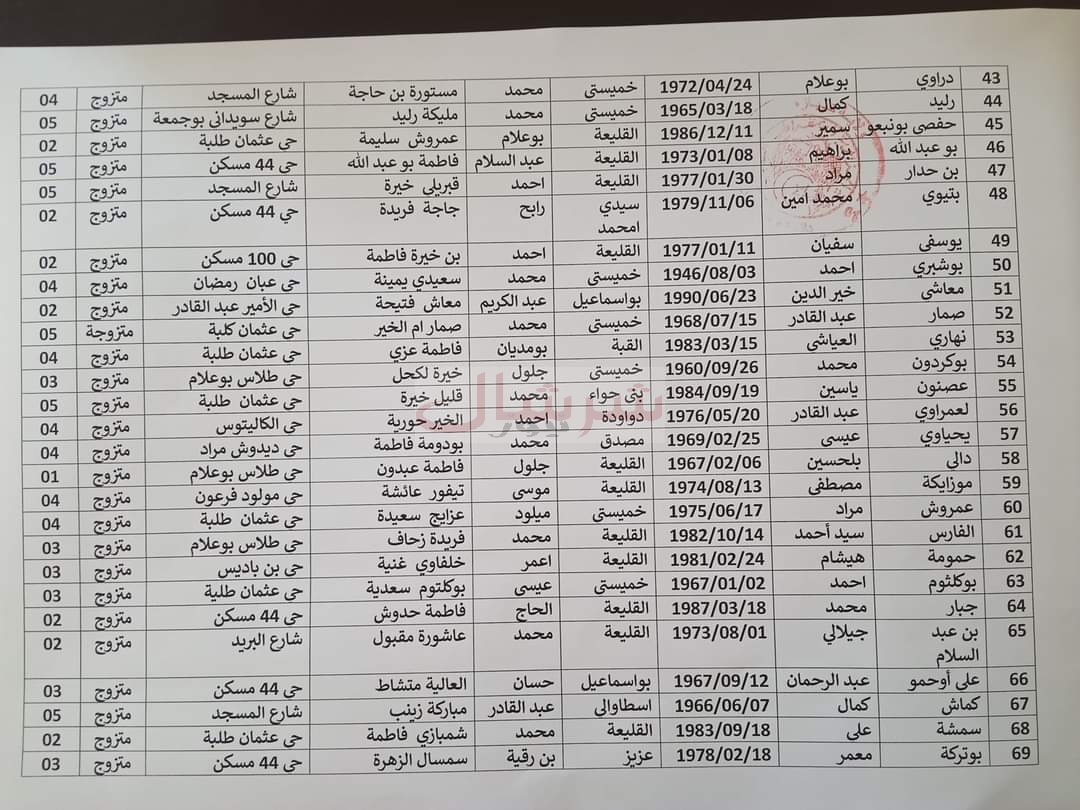 43 دراوي بوعلام 1972/04/24 خميستي محمد مستورة بن حاجة شارع المسجد متزوج 04
44 رليد كمال 1965/03/18 خميستي محمد مليكة رليد شارع سويداني بوجمعة متزوج 05
45 حفصي بونبعو سمير 1986/12/11 القليعة بوعلام عمروش سليمة حي عثمان طلبة متزوج 02
46 بو عبد الله براهيم 1973/01/08 القليعة عبد السلام فاطمة بو عبد الله حي 44 مسكن متزوج 05
47 بن حدار مراد 1977/01/30 القليعة احمد قبريلي خيرة شارع المسجد متزوج 05
48 بتيوي محمد امين 1979/11/06 سيدي رابح جاجة فريدة حي 44 مسكن متزوج 02
امحمد
49 يوسفي سفيان 1977/01/11 القليعة احمد بن خيرة فاطمة حي 100 مسكن متزوج 02
50 بوشيري احمد 1946/08/03 خميستي محمد سعيدي يمينة حي عبان رمضان متزوج 04
51 معاشي خير الدين 1990/06/23 بواسماعيل عبد الكريم معاش فتيحة حي الأمير عبد القادر متزوج 02
52 صمار عبد القادر 1968/07/15 خميستي محمد صمار ام الخير حي عثمان كلبة متزوجة 05
53 نهاري العياشي 1983/03/15 القبة بومديان فاطمة عزي حي عثمان طلبة متزوج 04
54 بوكردون محمد 1960/09/26 خميستي جلول خيرة لكحل حي طلاس بوعلام متزوج 03
55 عصنون ياسين 1984/09/19 بني حواء محمد قليل خيرة حي عثمان طلبة متزوج 05
56 لعمراوي عبد القادر 1976/05/20 دواودة احمد الخير حورية حي الكاليتوس متزوج 04
57 يحياوي عيسى 1969/02/25 مصدق محمد بودومة فاطمة حي ديدوش مراد متزوج 04
58 دالي بلحسين 1967/02/06 القليعة جلول فاطمة عبدون حي طلاس بوعلام متزوج 01
59 موزايكة مصطفى 1974/08/13 القليعة موسى تيفور عائشة حي مولود فرعون متزوج 04
60 عمروش مراد 1975/06/17 خميستي ميلود عزايج سعيدة حي عثمان طلبة متزوج 04
61 الفارس سيد أحمد 1982/10/14 القليعة محمد فريدة زحاف حي طلاس بوعلام متزوج 03
62 حمومة هيشام 1981/02/24 القليعة اعمر خلفاوي غنية حي بن باديس متزوج 03
63 بوكلثوم احمد 1967/01/02 خميستي عيسى بوكلتوم سعدية حي عثمان طلبة متزوج 03
64 جبار محمد 1987/03/18 القليعة الحاج فاطمة حدوش حي 44 مسكن متزوج 02
65 بن عبد جيلالي 1973/08/01 القليعة محمد عاشورة مقبول شارع البريد متزوج 02
السلام
66 علي أوحمو عبد الرحمان 1967/09/12 بواسماعيل حسان العالية متشاط حي 44 مسكن متزوج 03
67 كماش كمال 1966/06/07 اسطاوالي عبد القادر مباركة زينب شارع المسجد متزوج 05
68 سمشة علي 1983/09/18 القليعة محمد شمبازي فاطمة حي عثمان طلبة متزوج 02
69 بوتركة معمر 1978/02/18 عزيز بن رقية سمسال الزهرة حي 44 مسكن متزوج 03
شرشال
نيوز